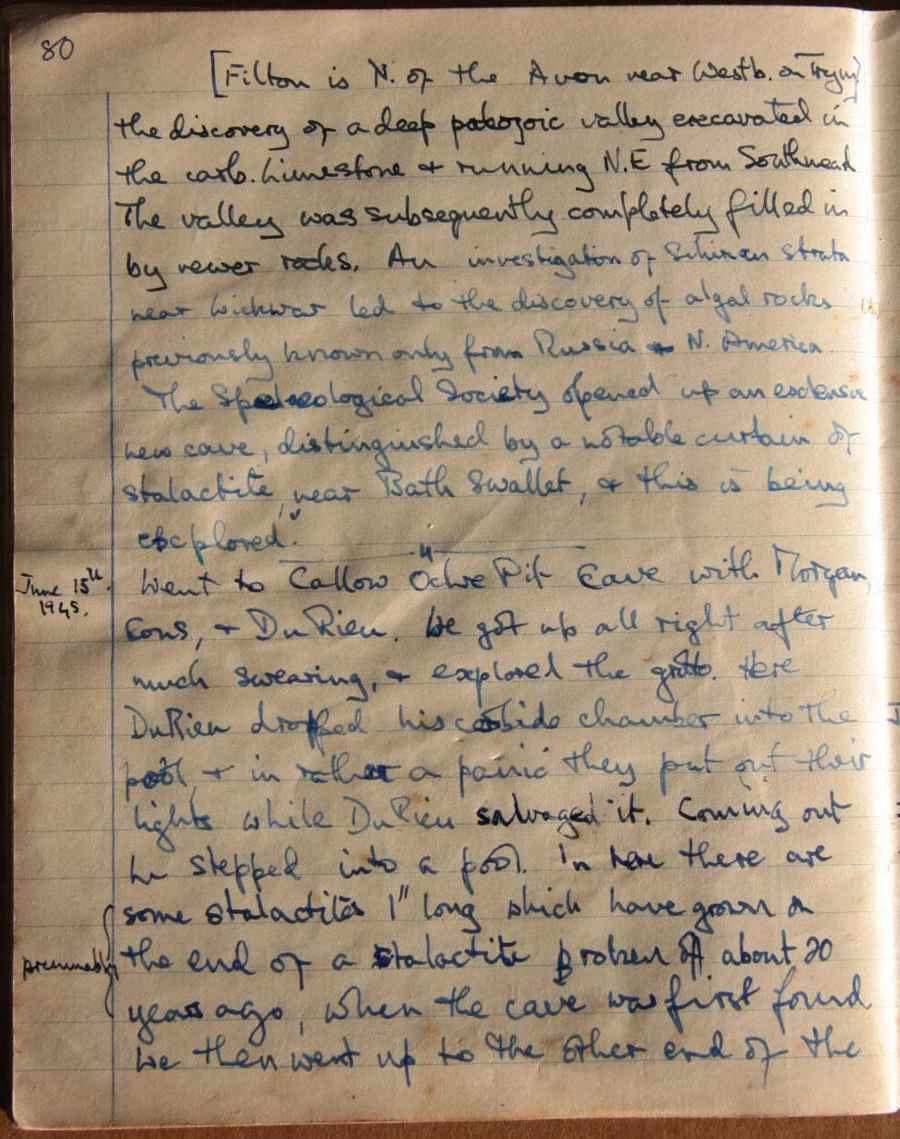 80
[Filton is N. of the Avon near Westb. on Trym]
the discovery of a deep paleozoic valley excavated in
the carb. Limestone + running N.E from Southmead
The valley was subsequently completely filled in
by newer rocks. An investigation of Silurian strata
near Wickwar led to the discovery of algal rocks
previously known only from Russia + N. America
The Speleological Society opened up an extensive
new cave, distinguished by a notable curtain of
stalactite, near Bath Swallet, & this is being
explored."
June 15th
1945.
Went to Callow Ochre Pit Cave with Morgan,
Cons, + DuRieu. We got up all right after
much swearing, + explored the grotto. Here
DuRieu dropped his carbide chamber into the
pool, + in rather a panic they put out their
lights while DuRieu salvaged it. Coming out
he stepped into a pool. In here there are
some stalactites 1" long which have grown on
presumably
the end of a stalactite broken off about 20
years ago, when the cave was first found
We then went up to the other end of the